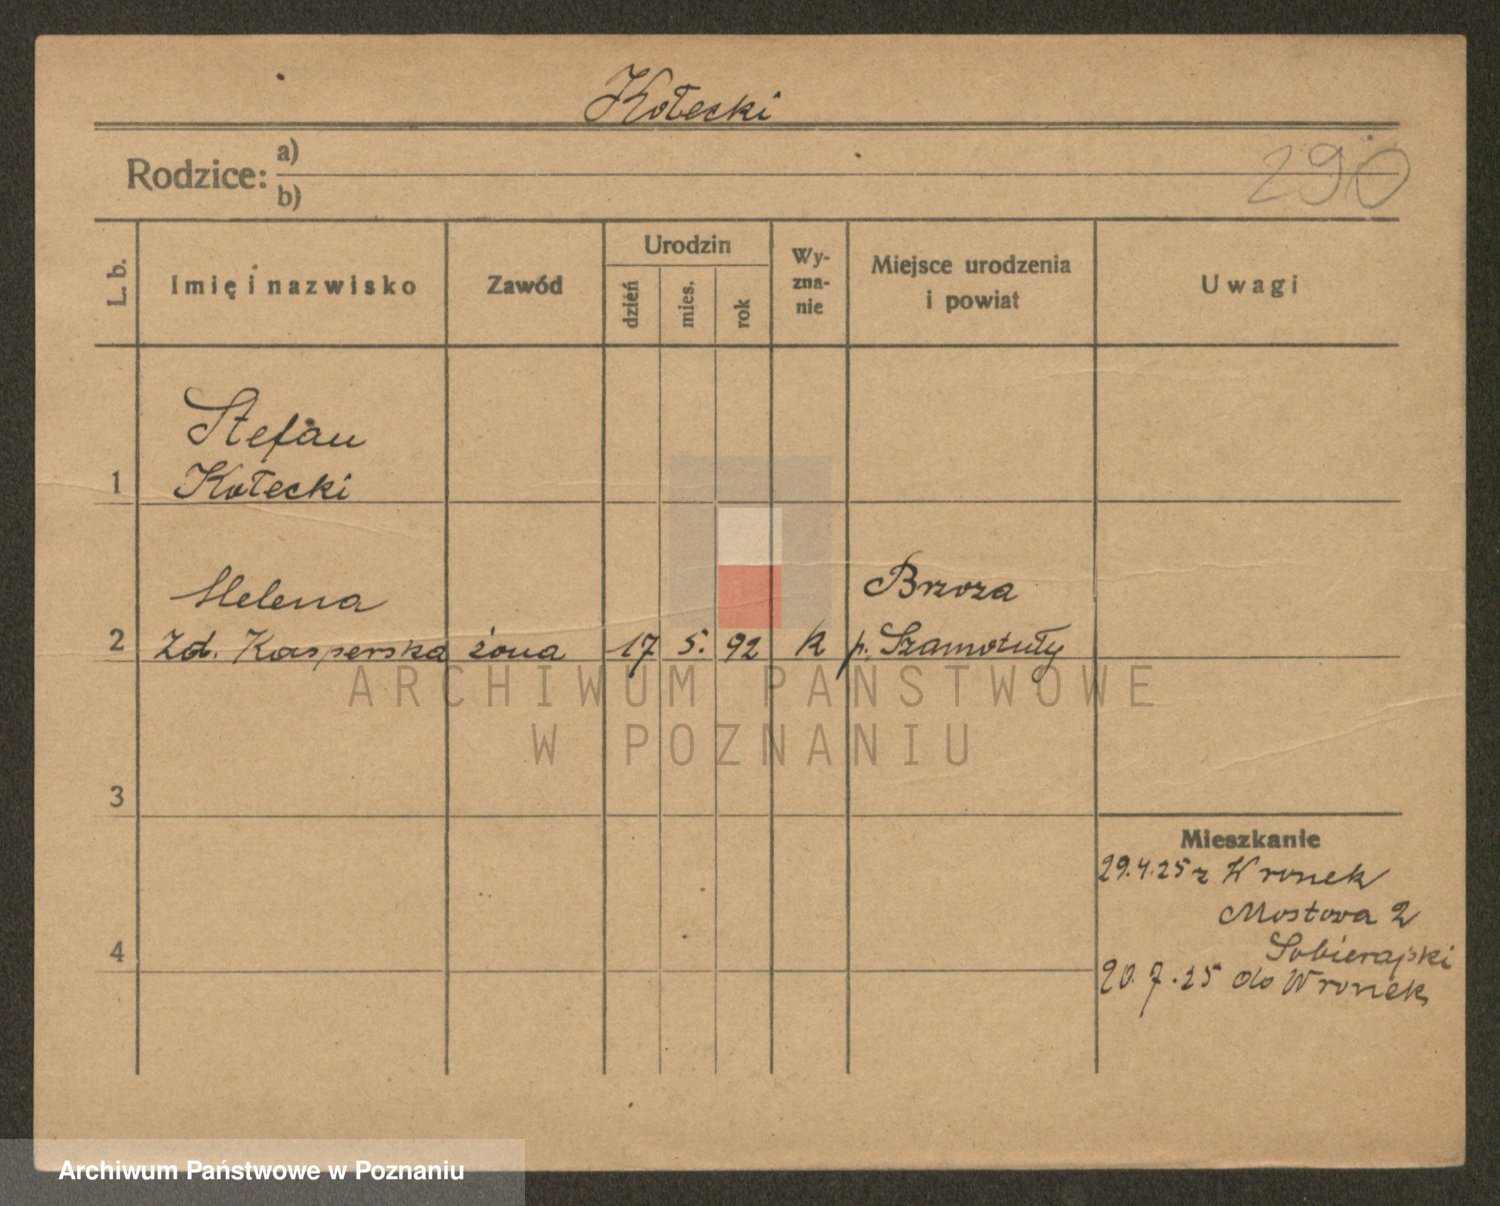 Kołecki
Rodzice: a)
b)
290
L. b.
Imię i nazwisko
Zawód
Urodzin
dzień
mies.
rok
Wy-
zna-
nie
Miejsce urodzenia
i powiat
Uwagi
Stefan
1 Kołecki
Helena
Brzoza
2 Zd. Kasperska żona 17 5. 92 k p. Szamotuły
ARCHIWUM PAŃSTWOWE
W POZNANIU
3
Mieszkanie
29.4.25 z Wronek
Mostowa 2
Sobierajski
4
20.7.25 do Wronek
Archiwum Państwowe w Poznaniu